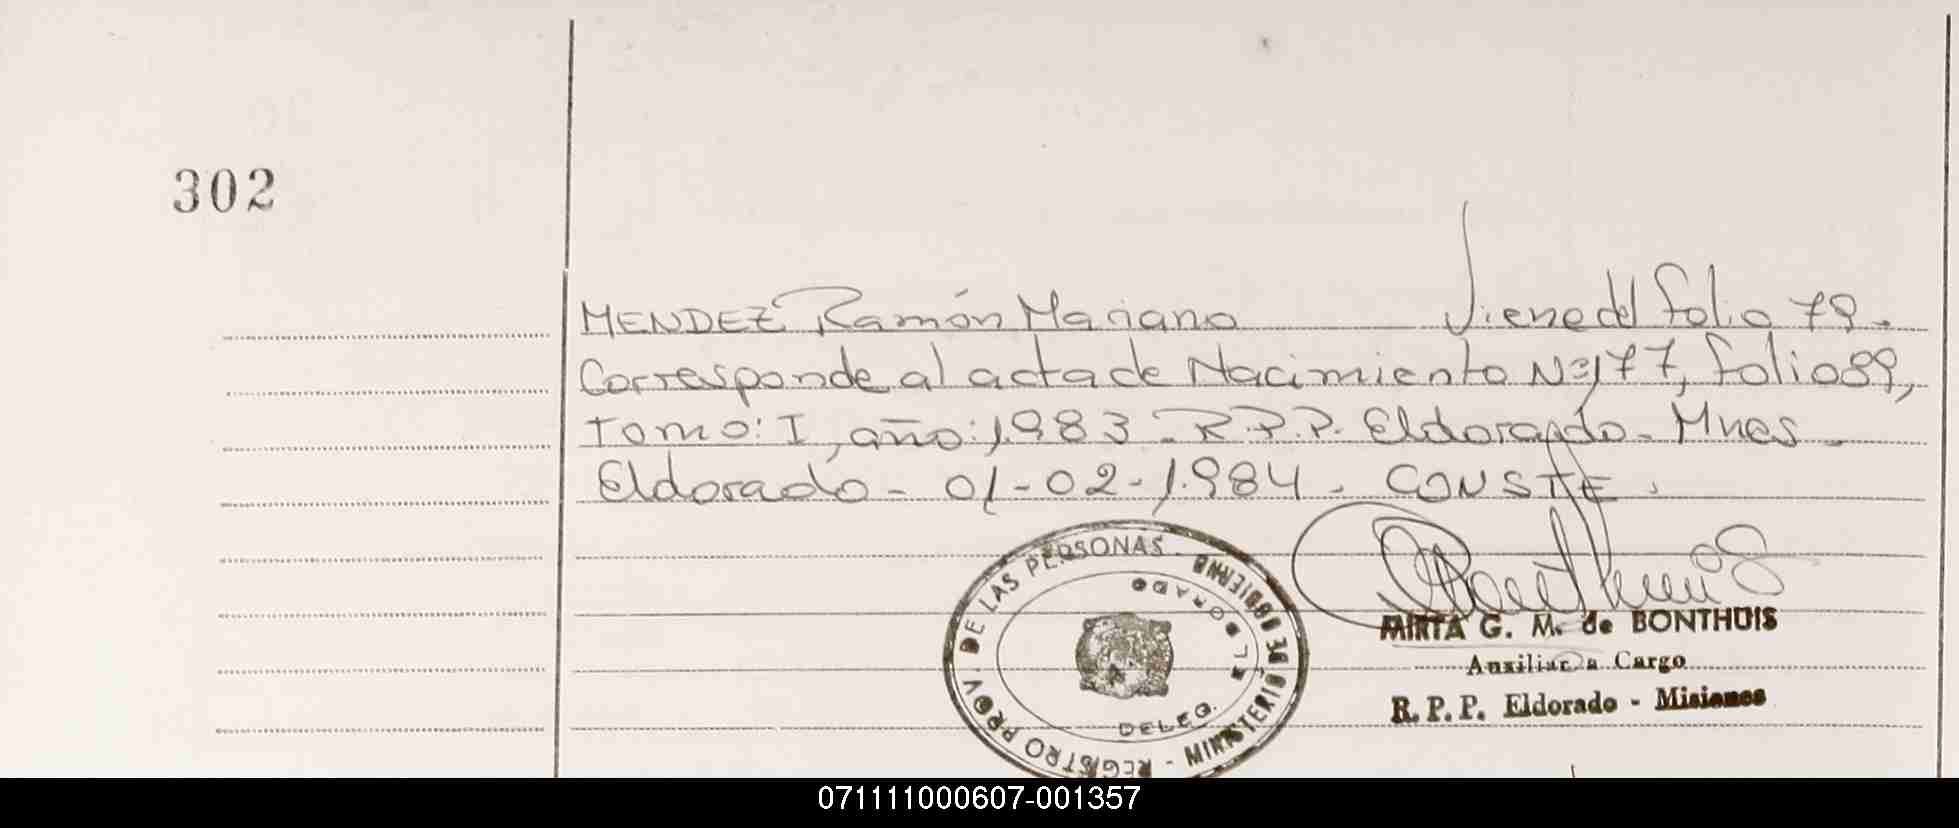 302
MENDEZ Ramón Mariano Viene del folio 79.
Corresponde al acta de Nacimiento Nº 177, folio 89,
tomo: I, año: 1.983 - R.P.P. Eldorado - Mnes -
Eldorado - 01-02-1.984 - CONSTE.
REGISTRO PROV. DE LAS PERSONAS - MINISTERIO DE GOBIERNO
DELEG. ELDORADO
MIRTA G. M. de BONTHUIS
Auxiliar a Cargo
R. P. P. Eldorado - Misiones
071111000607-001357